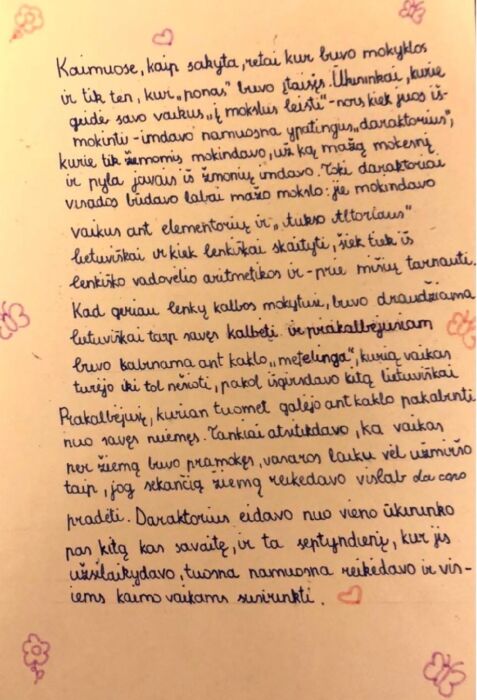 Kaimuose, kaip sakyta, retai kur buvo mokyklos
ir tik ten, kur „ponas" buvo įtaisęs. Ūkininkai, kurie
geidė savo vaikus „į mokslus leisti" - nors kiek juos iš-
mokinti - imdavo namuosna ypatingus „daraktorius",
kurie tik žiemomis mokindavo, už ką mažą mokesnį
ir pyla javais iš žmonių imdavo. Toki daraktoriai
visados būdavo labai mažo mokslo: jie mokindavo
vaikus ant elementorių ir „Aukso Altoriaus"
lietuviškai ir kiek lenkiškai skaityti, šiek tiek iš
lenkiško vadovėlio aritmetikos ir - prie mišių tarnauti.
Kad geriau lenkų kalbos mokytųsi, buvo draudžiama
lietuviškai tarp savęs kalbėti ir prakalbėjusiam
buvo kabinama ant kaklo „metelinga", kurią vaikas
turėjo iki tol nešioti, pakol išgirsdavo kitą lietuviškai
Prakalbėjusį, kurian tuomet galėjo ant kaklo pakabinti
nuo savęs nuėmęs. Tankiai atsitikdavo, ka vaikas
per žiemą buvo pramokęs, vasaros laiku vėl užmiršo
taip, jog sekančią žiemą reikėdavo vislab da capo
pradėti. Daraktorius eidavo nuo vieno ūkininko
pas kitą kas savaitę, ir ta septyndienį, kur jis
užsilaikydavo, tuosna namuosna reikėdavo ir vis-
iems kaimo vaikams susirinkti.